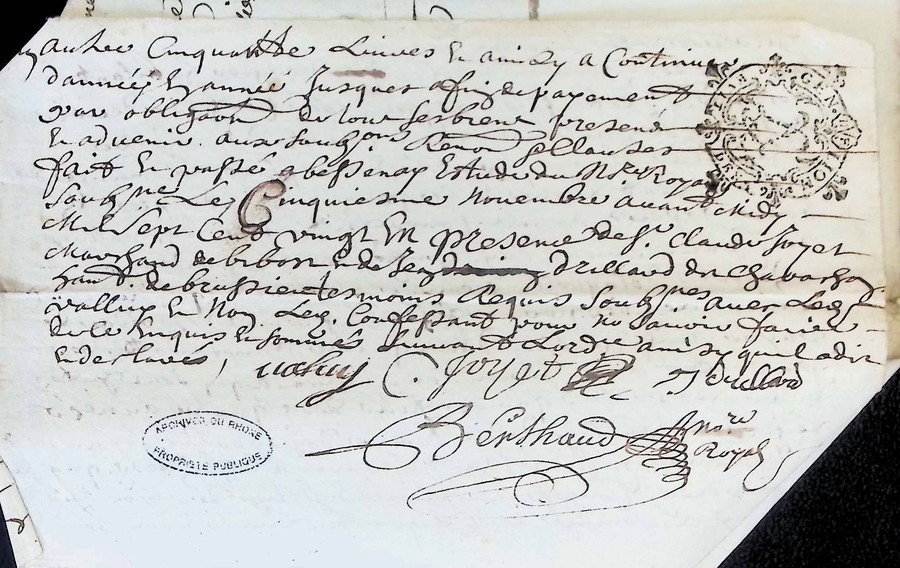 autre Cinquante Livres et ainsy a Continuer
d'année en année Jusques a fin de payement
par obligaon de tous ses biens presens
et advenir aux soubmons Renons & Clauses
fait et passé a bessenay Estude du Nore Royal
Soubsne Le Cinquiesme Novembre avant Midy
Mil sept Cent vingt En presence de Sr. Claude Joyet
Marchand de bibost et de Jean Drillard
de brussieu tesmoins Requis Soubsnes avec Led.
vallux et Non Led. Confessant pour ne savoir faire
de ce Enquis et sommés suivant L'ordce ainsy qu'il a dit
et declaré
vallux C. Joyet J Drillard
Berthaud nore
Royal
GENE
ARCHIVES DU RHONE
PROPRIÉTÉ PUBLIQUE